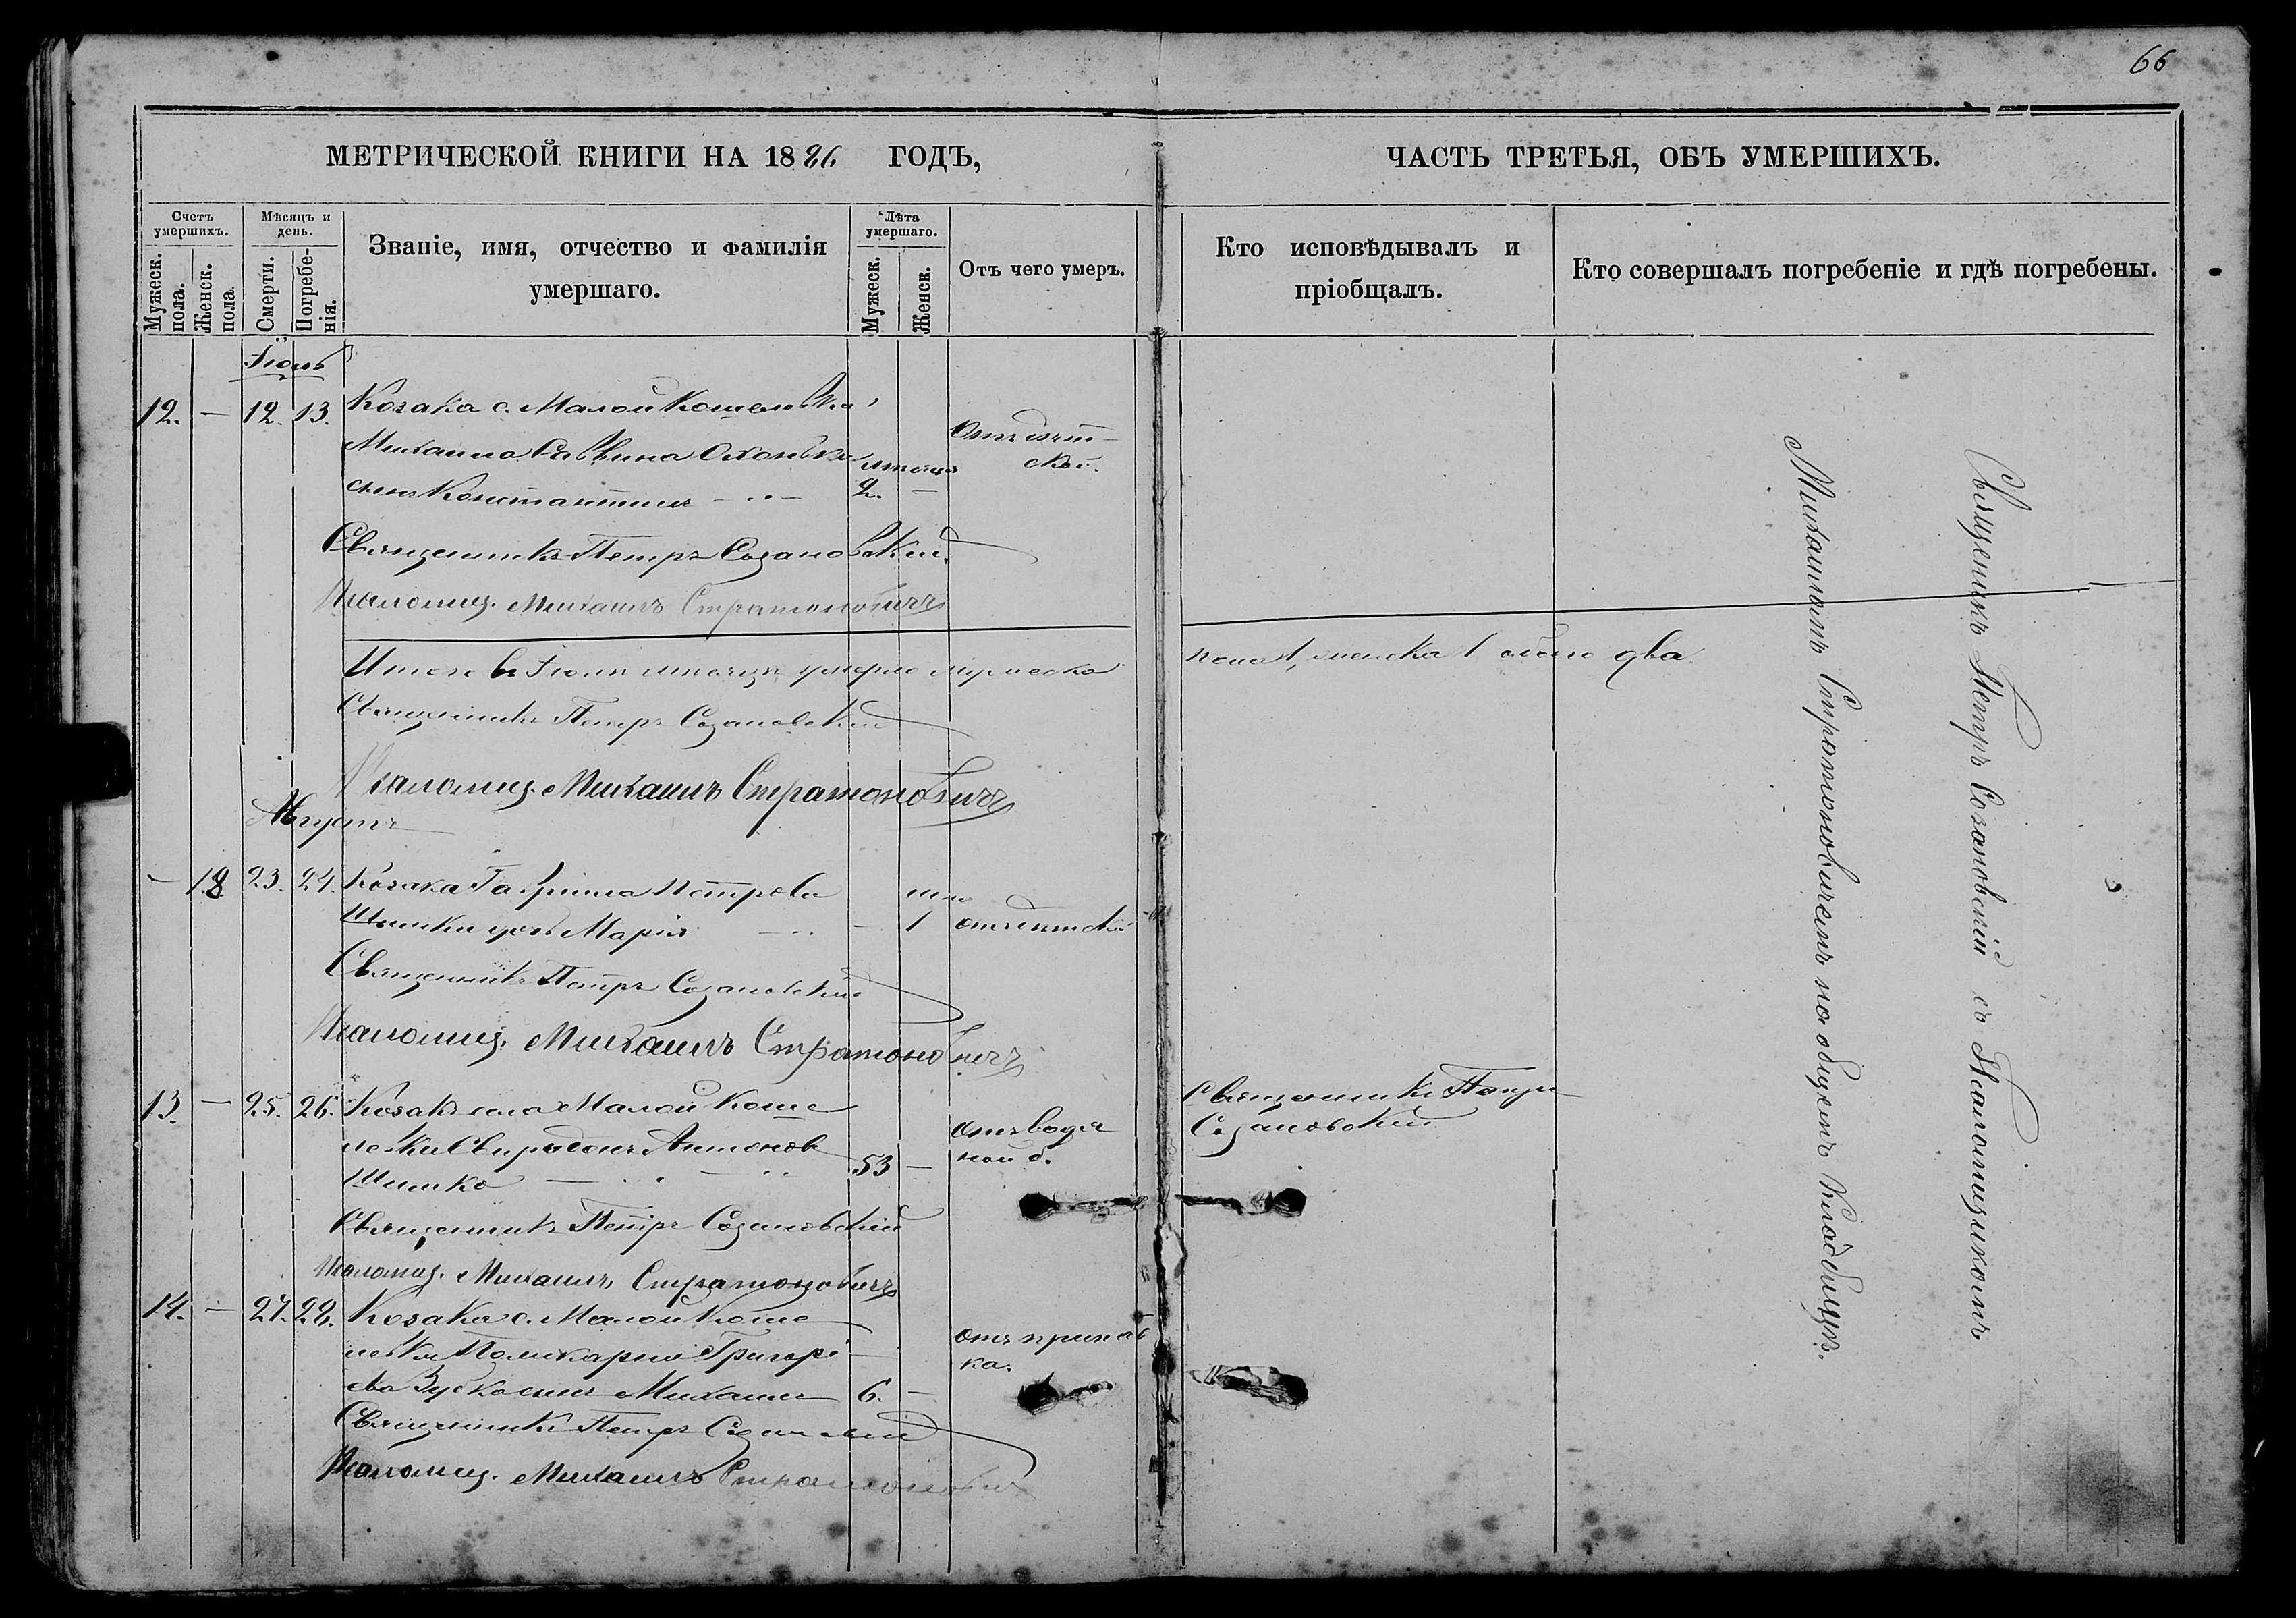 66
МЕТРИЧЕСКОЙ КНИГИ НА 1886 ГОДЪ,
ЧАСТЬ ТРЕТЬЯ, ОБЪ УМЕРШИХЪ.
Счетъ умершихъ.
Мѣсяцъ и день.
Званіе, имя, отчество и фамилія умершаго.
Лѣта умершаго.
Отъ чего умеръ.
Кто исповѣдывалъ и пріобщалъ.
Кто совершалъ погребеніе и гдѣ погребены.
Мужеск. пола.
Женск. пола
Смерти.
Погребенія.
Мужеск.
Женск.
Іюль
12. — 12. 13. Козака с. Малой Кошелевки
Михаила Саввина
сынъ Константинъ 2. —
Священникъ Петръ Созановский
Псаломщ. Михаилъ Стратоновичъ
Итого в Іюлѣ мѣсяцѣ умерло мужеска
пола 1, женска 1 обоего два
Священникъ Петръ Созановский
Псаломщ. Михаилъ Стратоновичъ
Августъ
— 12 23. 24. Козака Гавріила Петрова
Шишки дочь Марія — 1
Священникъ Петръ Созановский
Псаломщ. Михаилъ Стратоновичъ
13. — 25. 26. Козакъ села Малой Коше
левки Свиридонъ Антоновъ
Шишко 53 —
отъ водя
ной б.
Священникъ Петръ
Созановский
Священникъ Петръ Созановскій
Псаломщ. Михаилъ Стратоновичъ
14. — 27. 28. Козака с. Малой Коше
левки Поликарпа Григорі
ева Зубка сынъ Михаилъ 6. —
отъ припад
ка.
Священникъ Петръ Созановский
Псаломщ. Михаилъ Стратоновичъ
Священникъ Петръ Созановскій съ Псаломщикомъ
Михаиломъ Стратоновичемъ на общемъ кладбищѣ.